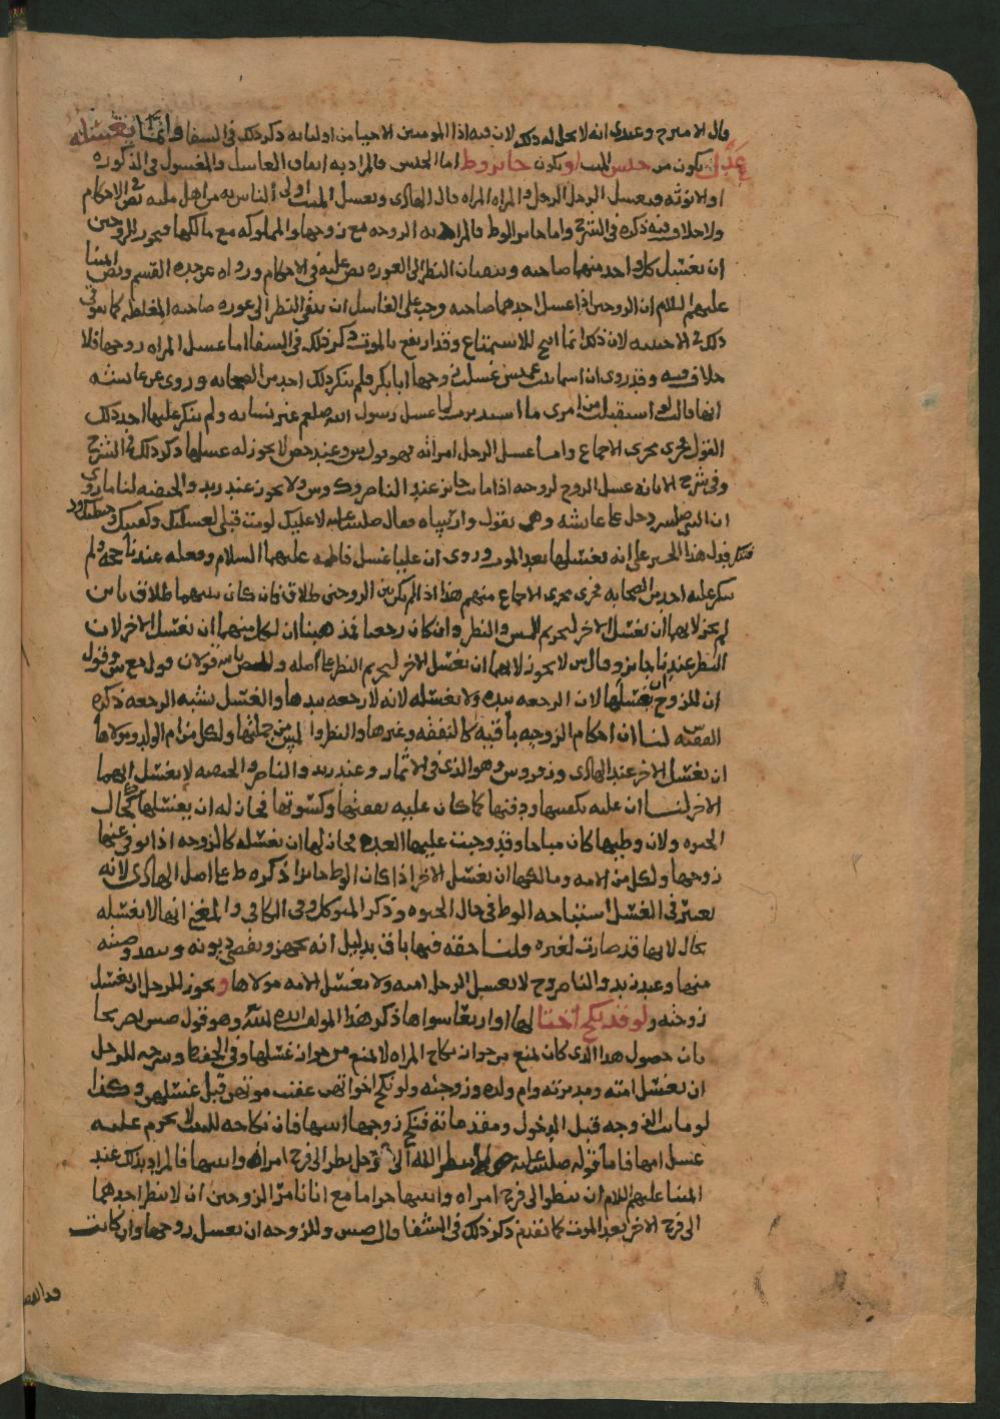 قال الامير ح وعندى انه لا يحل له ذلك لان فيه اذا المومنين الاحيا من اوليايه ذكر ذلك فى الشفا وانما يغسله
عدل يكون من جنس الميت او يكون جايز وطء اما الجنس فالمراد به اتفاق الغاسل والمغسول فى الذكوره
او الانوثه فيغسل الرجل الرجل والمراه المراه قال الهادى ويغسل الميت اولى الناس به من اهل ملته نص فى الاحكام
ولا خلاف فيه ذكره فى الشرح واما جايز الوطء فالمراد به الزوجه مع زوجها والمملوكه مع مالكها فيجوز للزوجين
ان يغسل كل واحد منهما صاحبه ويتقيان النظر الى العوره نص عليه فى الاحكام ورواه عن جده القسم ونص ايمتنا
عليهم السلام ان الزوجين اذا غسل احدهما صاحبه وجب على الغاسل ان يتقى النظر الى عوره صاحبه المغلظه كما يتوقى
ذلك فى الاجنبيه لان ذلك انما ابيح للاستمتاع وقد ارتفع بالموت ذكر ذلك فى الشفا اما غسل المراه زوجها فلا
خلاف فيه وقد روى ان اسما بنت عميس غسلت زوجها ابا بكر فلم ينكر ذلك احد من الصحابه وروى عن عايشه
انها قالت لو استقبلت من امرى ما استدبرت لما غسل رسول الله صلعم غير نسايه ولم ينكر عليها احد ذلك
القول فجرى مجرى الاجماع واما غسل الرجل امراته فهو قول وعند لا يجوز له غسلها ذكر ذلك فى الشرح
وفى شرح الابانه غسل الزوج لزوجه اذا ماتت جايز عند الناصر و ولا يجوز عند زيد والحنفيه لنا ما روى
ان النبى صلعم دخل على عايشه وهى تقول واراساه فقال صلى الله عليه لا عليك لو مت قبلى لغسلتك وكفنتك وحنطتك ودفنتك
فدل هذا الخبر على انه يغسلها بعد الموت وروى ان عليا غسل فاطمه عليهما السلام وفعله عندنا حجه ولم
ينكر عليه احد من الصحابه فجرى مجرى الاجماع منهم هذا اذا لم يكن بين الزوجين طلاق فان كان بينهما طلاق باين
لم يجز لايهما ان يغسل الاخر لتحريم اللمس والنظر وان كان رجعيا فمذهبنا ان لكل منهما ان يغسل الاخر لان
النظر عندنا جايز وقال لا يجوز لايهما ان يغسل الاخر لتحريم النظر على اصله قولان قول مع وقول
ان للزوج ان يغسلها لان الرجعه بيده ولا تغسله لانه لا رجعه بيدها والغسل يشبه الرجعه ذكره
الفقيه لنا ان احكام الزوجيه باقيه كالنفقه وغيرها والنظر واللمس من جملتها ولكل من ام الولد ومولاها
ان يغسل الاخر عند الهادى وزفر وهو الذى فى الاثمار وعند زيد والناصر والحنفيه لا يغسل ايهما
الاخر لنا ان عليه تكفينها ودفنها كما كان عليه نفقتها وكسوتها فجاز له ان يغسلها كحال
الحيوه ولان وطيها كان مباحا وقد وجبت عليها العده فجاز لها ان تغسله كالزوجه اذا توفى عنها
زوجها ولكل من الامه ومالكها ان يغسل الاخر اذا كان الوطء جايزا ذكره ط على اصل الهادى لانه
يعتبر فى الغسل استباحه الوطء فى حال الحيوه وذكر المتوكل وفى الكافى والمغنى انها لا تغسله
بحال لانها قد صارت لغيره ولنا حقه فيها باق بدليل انه يجهز ويقضى ديونه وينفذ وصيته
منها وعند زيد والناصر و ح لا يغسل الرجل امته ولا تغسل الامه مولاها ويجوز للرجل ان يغسل
زوجته ولو قد نكح اختا لها او اربعا سواها ذكر هذا المولف ايده الله وهو قول تصريحا
بان حصول هذا الذى كان يمنع من جواز نكاح المراه لا يمنع من جواز غسلها وفى الحفيظ وشرحه للرجل
ان يغسل امته ومدبرته وام ولده وزوجته ولو نكح اخواتهن عقيب موتهن قبل غسلهن وكذا
لو ماتت الزوجه قبل الدخول ومقدماته فنكح زوجها ابنتها فان نكاحه للبنت لا يحرم عليه
غسل امها فاما قوله صلى الله عليه لا ينظر الله الى رجل نظر الى فرج امراه وابنتها فالمراد بذلك عند
ايمتنا عليهم السلام ان ينظر الى فرج امراه وابنتها حراما مع انا نامر الزوجين ان لا ينظر احدهما
الى فرج الاخر بعد الموت كما تقدم ذكر ذلك فى الشفا قال وللزوجه ان تغسل زوجها وان كانت
قد انقضت